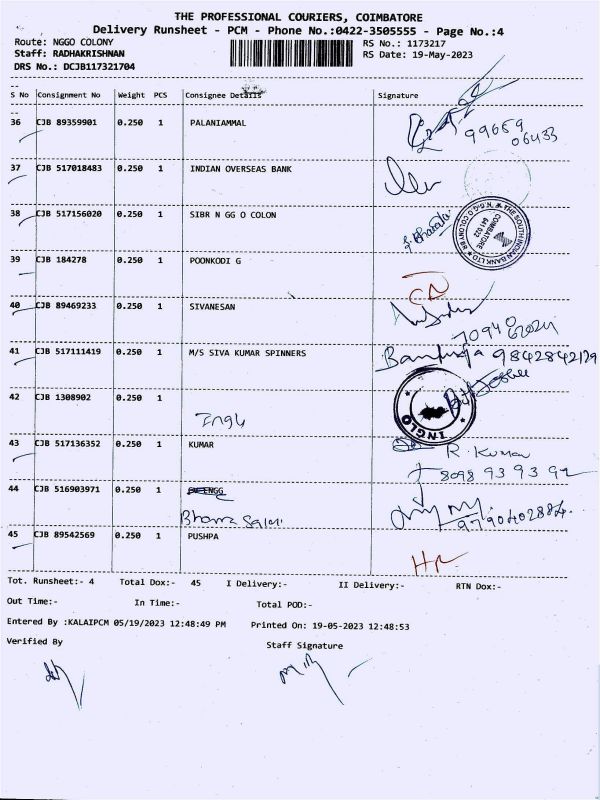 THE PROFESSIONAL COURIERS, COIMBATORE
Delivery Runsheet - PCM - Phone No.:0422-3505555 - Page No.:4
Route: NGGO COLONY RS No.: 1173217
Staff: RADHAKRISHNAN RS Date: 19-May-2023
DRS No.: DCJB117321704
S No Consignment No Weight PCS Consignee Details Signature
36 CJB 89359901 0.250 1 PALANIAMMAL 99659
06433
37 CJB 517018483 0.250 1 INDIAN OVERSEAS BANK
38 CJB 517156020 0.250 1 SIBR N GG O COLON
THE SOUTH INDIAN BANK LTD N.G.G.O. COLONY BR COIMBATORE 641 022
39 CJB 184278 0.250 1 POONKODI G
40 CJB 89469233 0.250 1 SIVANESAN
41 CJB 517111419 0.250 1 M/S SIVA KUMAR SPINNERS 9842842129
42 CJB 1308902 0.250 1
INGLO
43 CJB 517136352 0.250 1 KUMAR R. Kumar
8098 93 93 92
44 CJB 516903971 0.250 1
9790402884
45 CJB 89542569 0.250 1 PUSHPA
Tot. Runsheet:- 4 Total Dox:- 45 I Delivery:- II Delivery:- RTN Dox:-
Out Time:- In Time:- Total POD:-
Entered By :KALAIPCM 05/19/2023 12:48:49 PM Printed On: 19-05-2023 12:48:53
Verified By Staff Signature